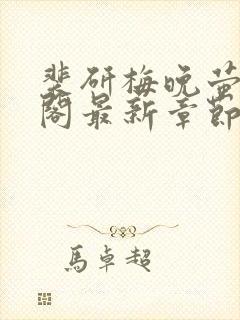 裴研梅晚萤
阁最新章節
馬卓超